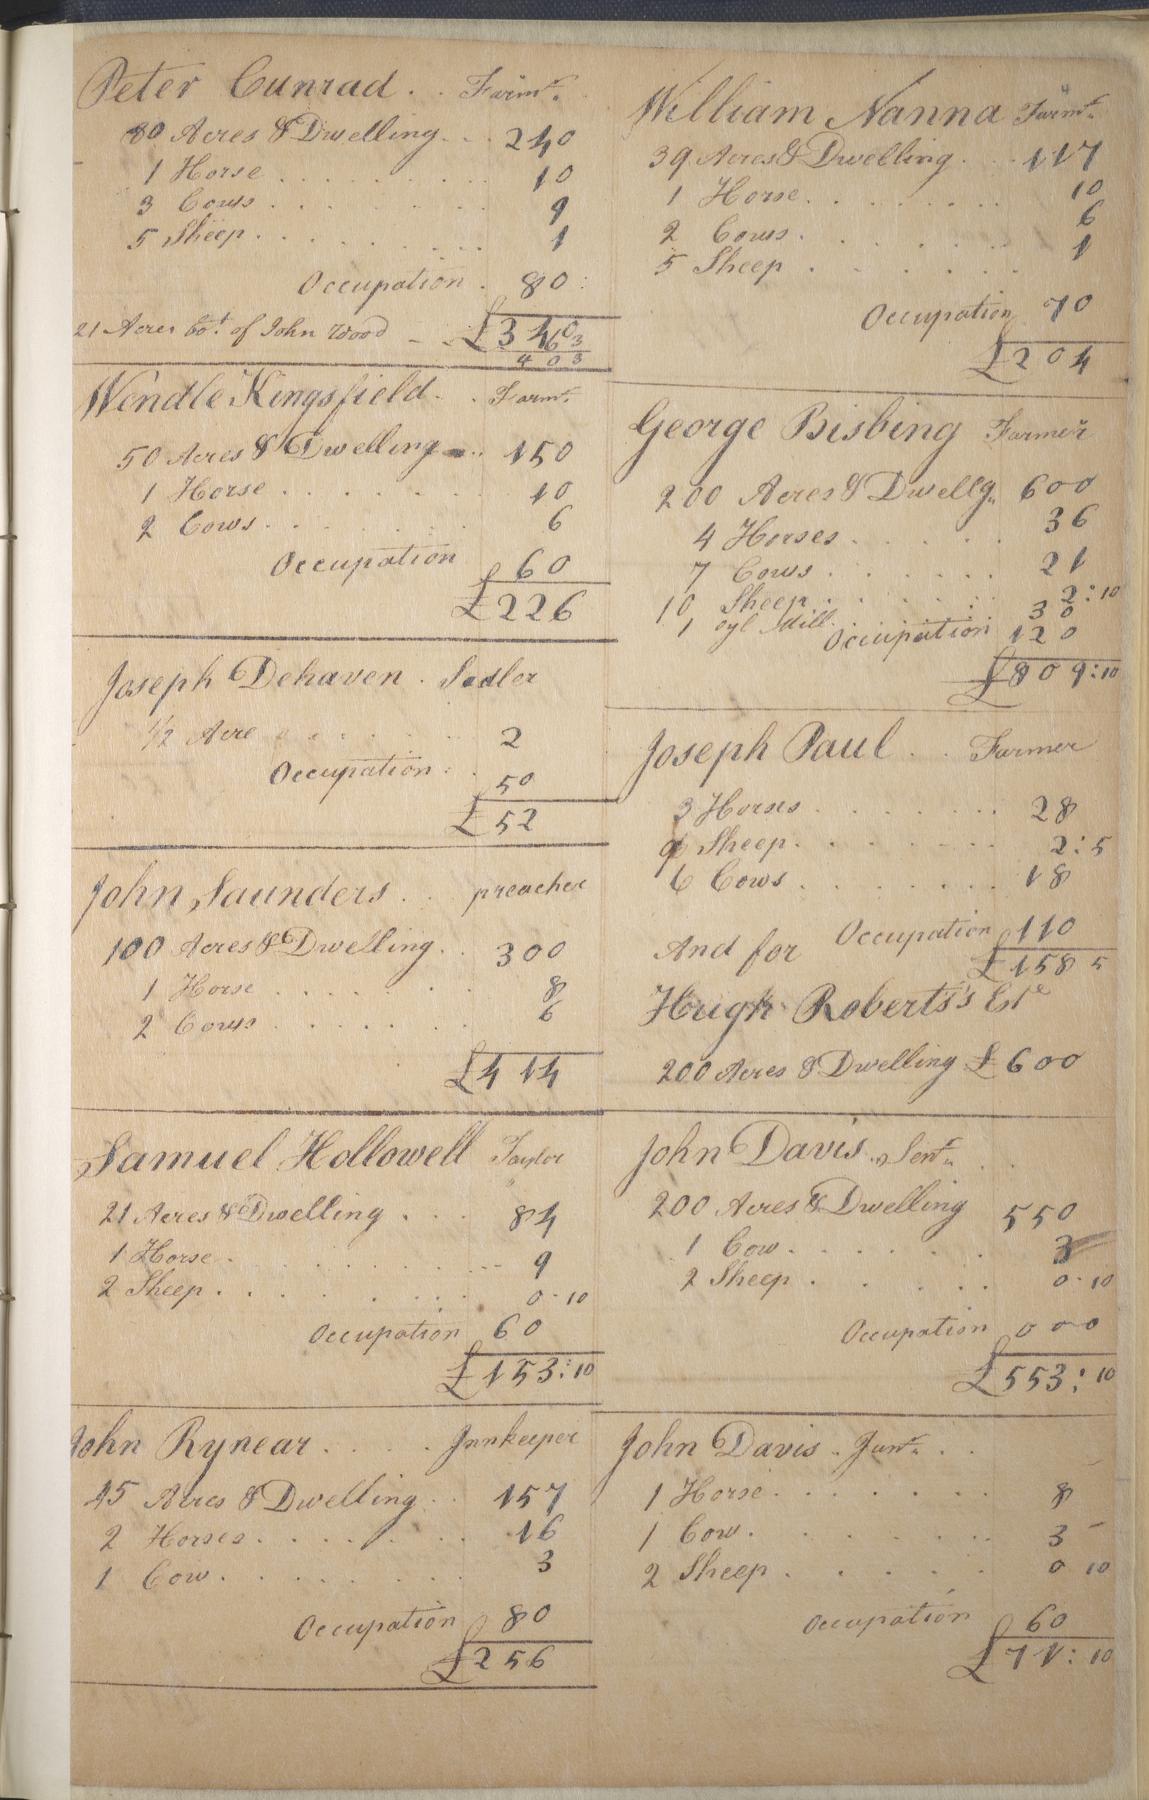 Peter Cunrad . . Farmr.
80 Acres & Dwelling . . . 240
1 Horse . . . . . . . . . 10
3 Cows . . . . . . 9
5 Sheep . . . . . . . . 1
Occupation . 80 :
£340
21 Acres bot. of John Wood - - 63
403
Wendle Kingsfield . . Farmr.
50 Acres & Dwelling . . 150
1 Horse . . . . . . . . 10
2 Cows . . . . . . . 6
Occupation 60
£226
Joseph Dehaven . Sadler
1/2 Acre . . . . . . 2
Occupation . . 50
£52
John Saunders . . preacher
100 Acres & Dwelling . . 300
1 Horse . . . . . . . 8
2 Cows . . . . . . . 6
£414
Samuel Hollowell Taylor
21 Acres & Dwelling . . . 84
1 Horse . . . . . . . . . 9
2 Sheep . . . . . . . 0-10
Occupation 60
£153:10
John Rynear . . . . . Innkeeper
45 Acres & Dwelling . . 157
2 Horses . . . . . . . 16
1 Cow . . . . . . . . 3
Occupation 80
£256
William Nanna Farmr.
39 Acres & Dwelling . . . 117
1 Horse . . . . . . . . 10
2 Cows . . . . . . . 6
5 Sheep . . . . . . . 1
Occupation 70
£204
George Bisbing Farmer
200 Acres & Dwellg. 600
4 Horses . . . . . . 36
7 Cows . . . . . . 21
10 Sheep . . . . . . . 2:10
1 oyl Mill . . . . . 30
Occupation 120
£809:10
Joseph Paul . . Farmer
3 Horses . . . . . . . . 28
9 Sheep . . . . . . . 2:5
6 Cows . . . . . . . . 18
Occupation 110
And for £158 5
Hugh Roberts's Ete
200 Acres & Dwelling £600
John Davis . Senr. . .
200 Acres & Dwelling 550
1 Cow . . . . . . . 3
2 Sheep . . . . . 0-10
Occupation 000
£553:10
John Davis . Junr. . .
1 Horse . . . . . . . 8
1 Cow . . . . . . . . 3 -
2 Sheep . . . . . . 0 10
Occupation 60
£71:10